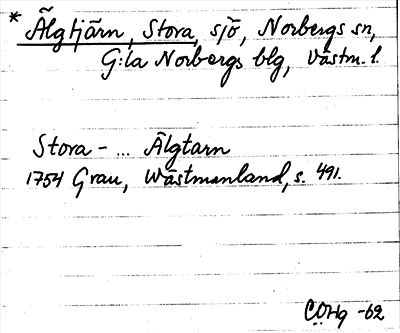 * Älgtjärn, Stora, sjö, Norbergs sn,
G:la Norbergs blg, Västm. l.
Stora - ... Älgtarn
1754 Grau, Wästmanland, s. 491.
CÖHg -62